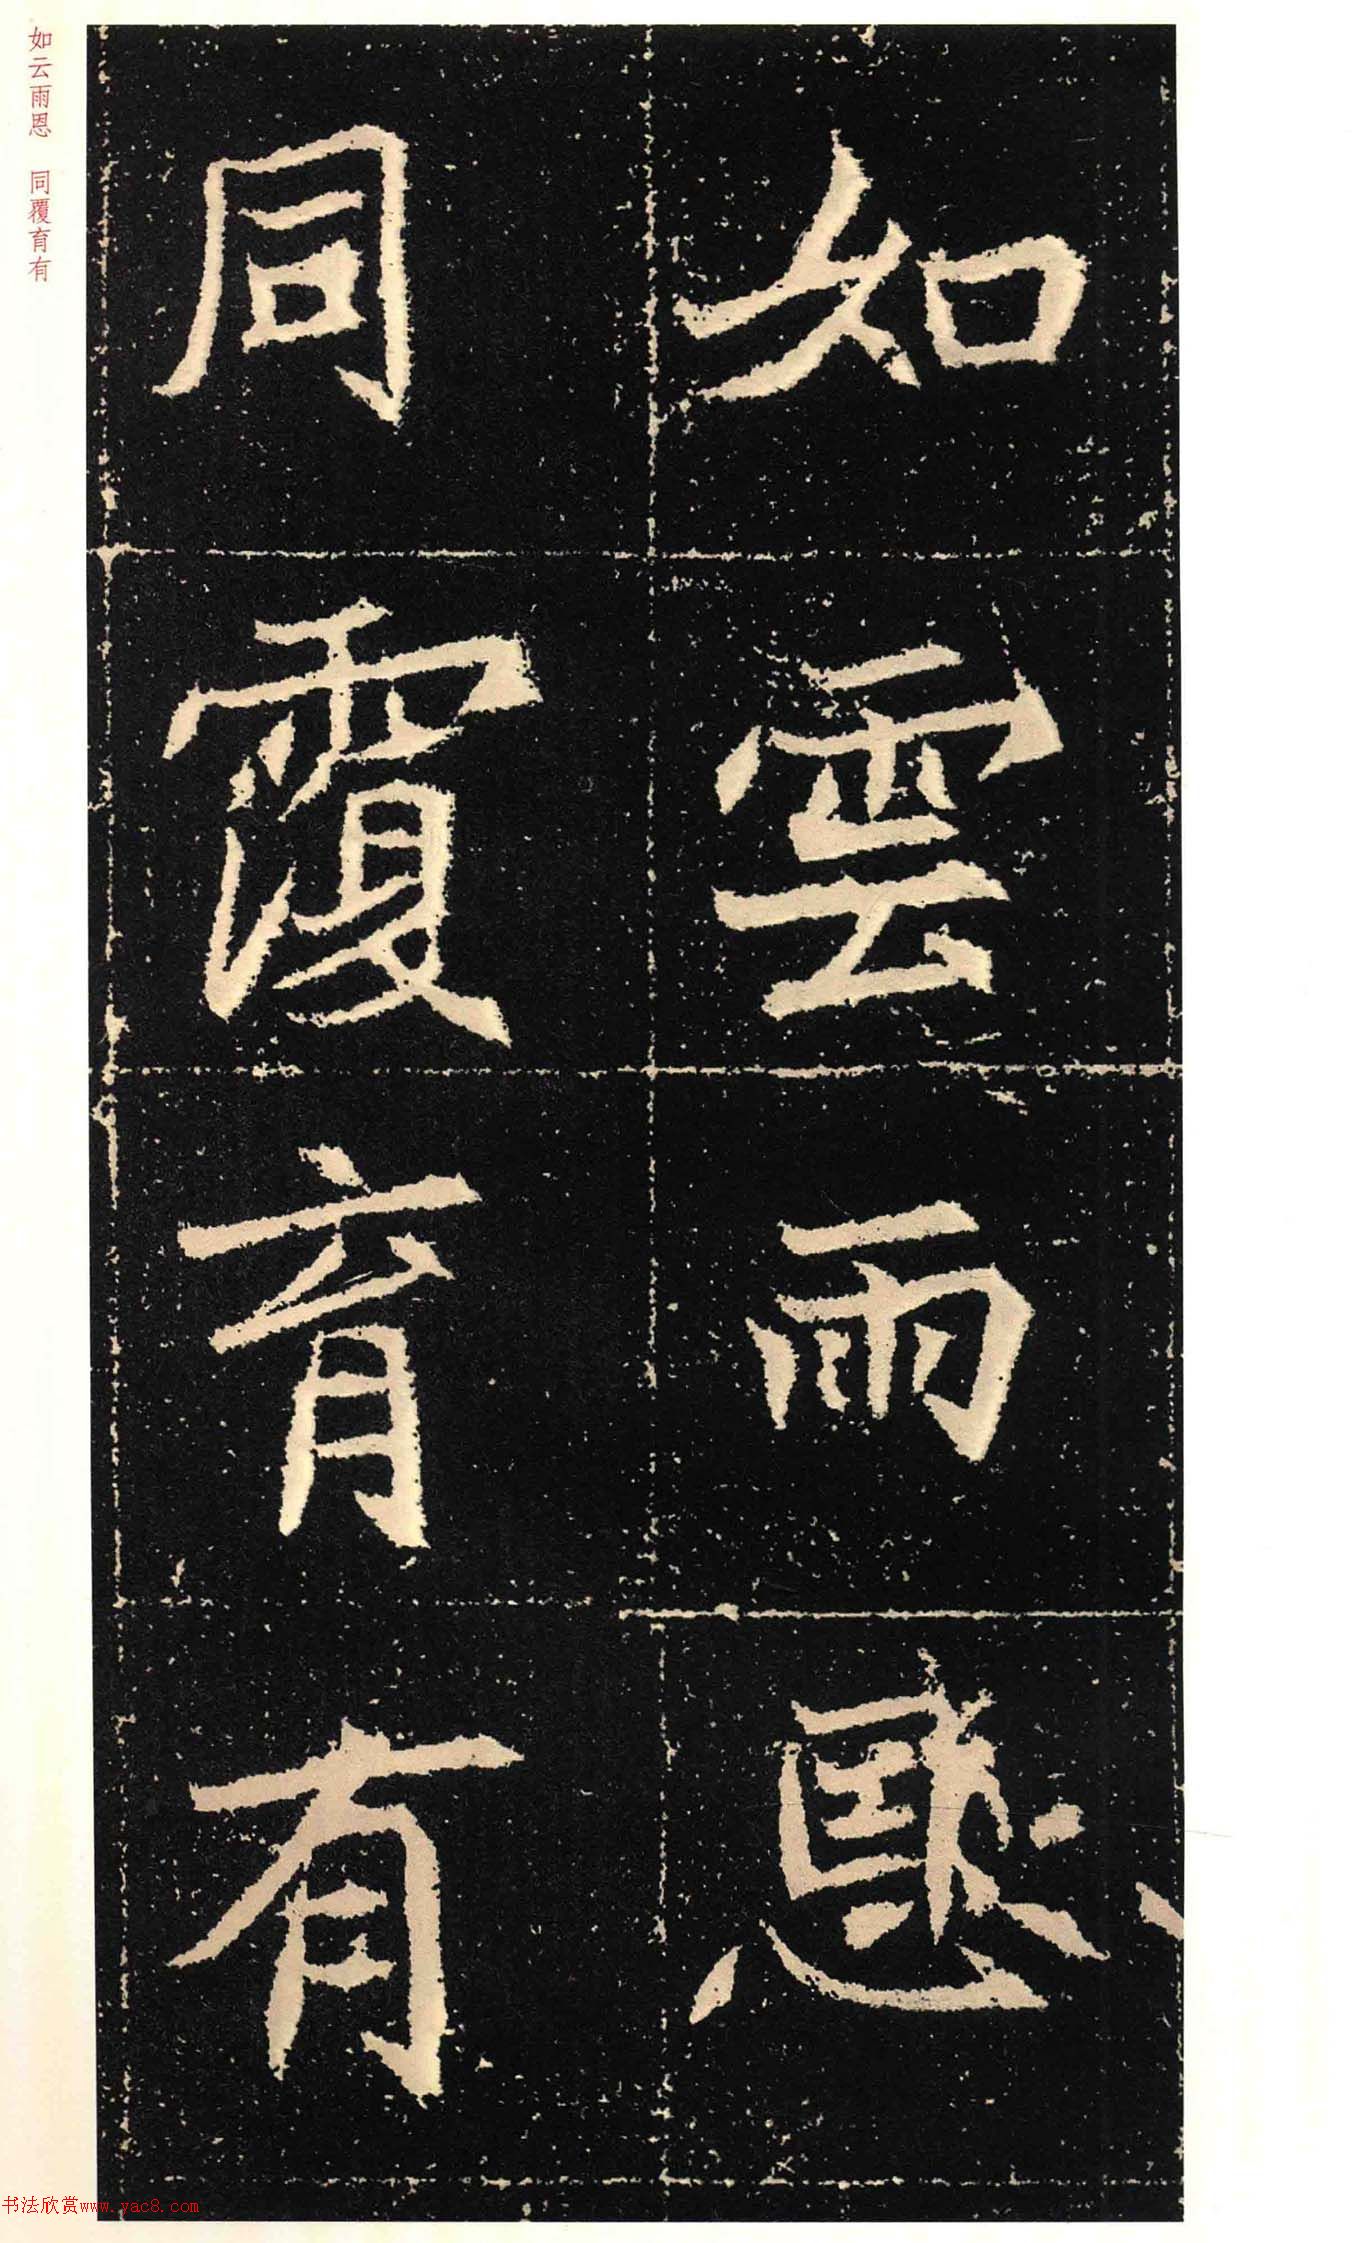 如雲雨恩
同覆育有
如云雨恩 同覆育有
书法欣赏www.yac8.com